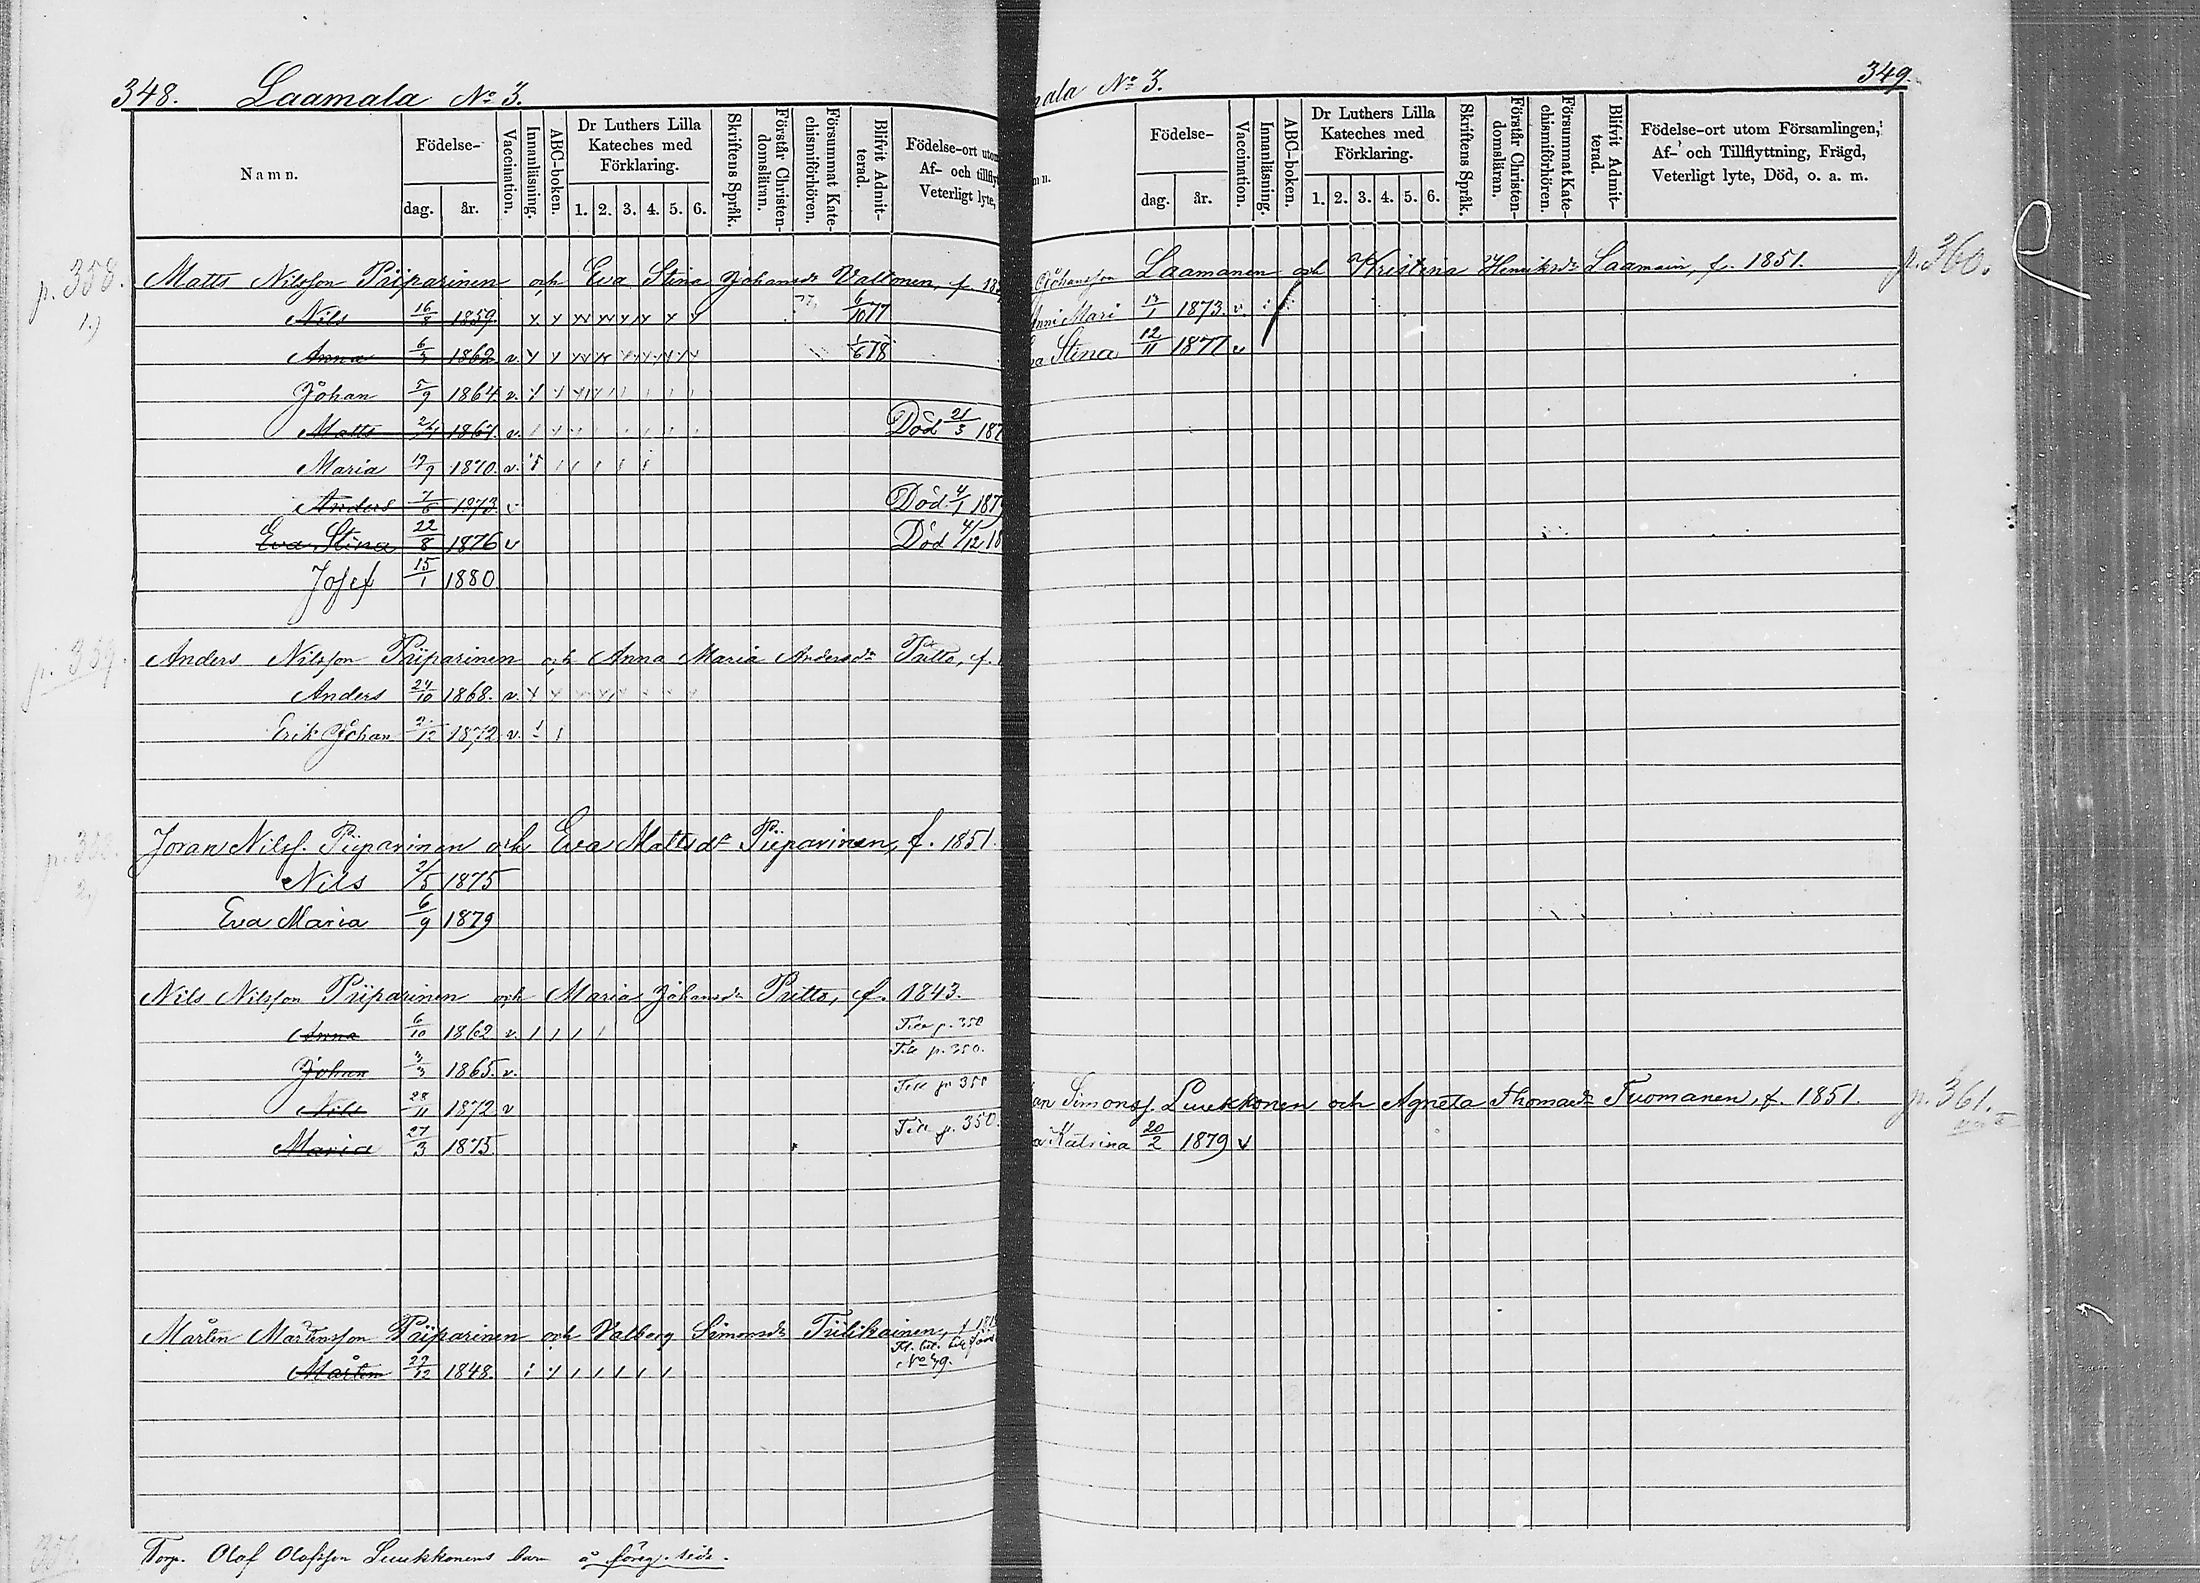 348. Laamala No 3.
Namn.
Födelse-
dag. år.
Vaccination.
Innanläsning.
ABC-boken.
Dr Luthers Lilla Kateches med Förklaring.
1. 2. 3. 4. 5. 6.
Skriftens Språk.
Förstår Christen-domsläran.
Försummat Kate-chismiförhören.
Blifvit Admit-terad.
Födelse-ort utom
Af- och tillfly
Veterligt lyte,
p. 358. Matts Nilsson Piiparinen och Eva Stina Johansdr Valtonen, f. 18
1.) Nils 16/8 1859. 6/10 77
Anna 6/3 1862 v. 1/6 78
Johan 5/9 1864 v.
Matts 1867. v. Död 21/3 187
Maria 17/9 1870. v.
Anders 7/6 1873. v Död 4/1 187
Eva Stina 22/8 1876 v Död 4/12 18
Josef 15/1 1880.
p. 359. Anders Nilsson Piiparinen och Anna Maria Andersdr Pitto, f.
Anders 24/10 1868. v.
Erik Johan 2/12 1872 v.
Joran Nilss. Piiparinen och Eva Mattsdr Piiparinen, f. 1851.
2.) Nils 2/5 1875
Eva Maria 6/9 1879
Nils Nilsson Piiparinen och Maria Johansdr Pitto, f. 1843.
Anna 6/10 1862 v. Till p. 350
Johan 3/3 1865. v. Till p. 350.
Nils 28/11 1872 v Till p 350
Maria 27/3 1875. Till p. 350.
Mårten Mårtensson Piiparinen och Valborg Simonsdr Tiilikainen, f 181
Mårten 29/12 1848. No 49.
Torp. Olof Olofsson Luukkonens barn å föreg. sida.
ala No 3. 349.
n.
Födelse-
dag. år.
Vaccination.
Innanläsning.
ABC-boken.
Dr Luthers Lilla Kateches med Förklaring.
1. 2. 3. 4. 5. 6.
Skriftens Språk.
Förstår Christen-domsläran.
Försummat Kate-chismiförhören.
Blifvit Admit-terad.
Födelse-ort utom Församlingen,
Af- och Tillflyttning, Frägd,
Veterligt lyte, Död, o. a. m.
Johansson Laamanen och Kristina Henriksdr Laamain, f. 1851. p. 360.
Anni Mari 13/1 1873. v.
a Stina 12/11 1877 v
an Simonss. Luukkonen och Agneta Thomasdr Tuomanen, f. 1851. p. 361.
a Katrina 20/2 1879 v